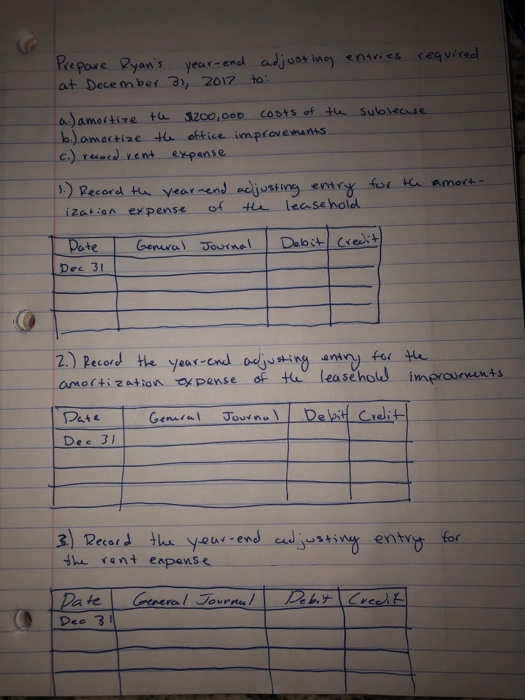 Prepare Ryan's year-end adjusting entries required
at December 31, 2017 to:
a.) amortize the $200,000 costs of the sublease
b.) amortize the office improvements
c.) record rent expense
1.) Record the year-end adjusting entry for the amort-
ization expense of the leasehold
Date General Journal Debit Credit
Dec 31
2.) Record the year-end adjusting entry for the
amortization expense of the leasehold improvements
Date General Journal Debit Credit
Dec 31
3.) Record the year-end adjusting entry for
the rent expense
Date General Journal Debit Credit
Dec 31